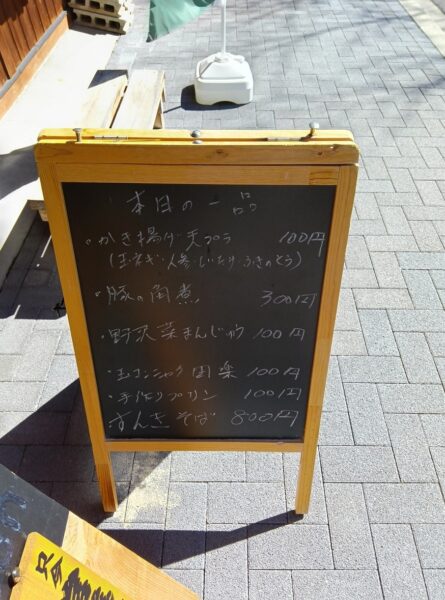 本日の一品
・かき揚げ天プラ 100円
(玉ネギ・人参・しいたけ・ふきのとう)
・豚の角煮 300円
・野沢菜まんじゅう 100円
・玉コンニャク 田楽 100円
・手作りプリン 100円
すんきそば 800円
只今